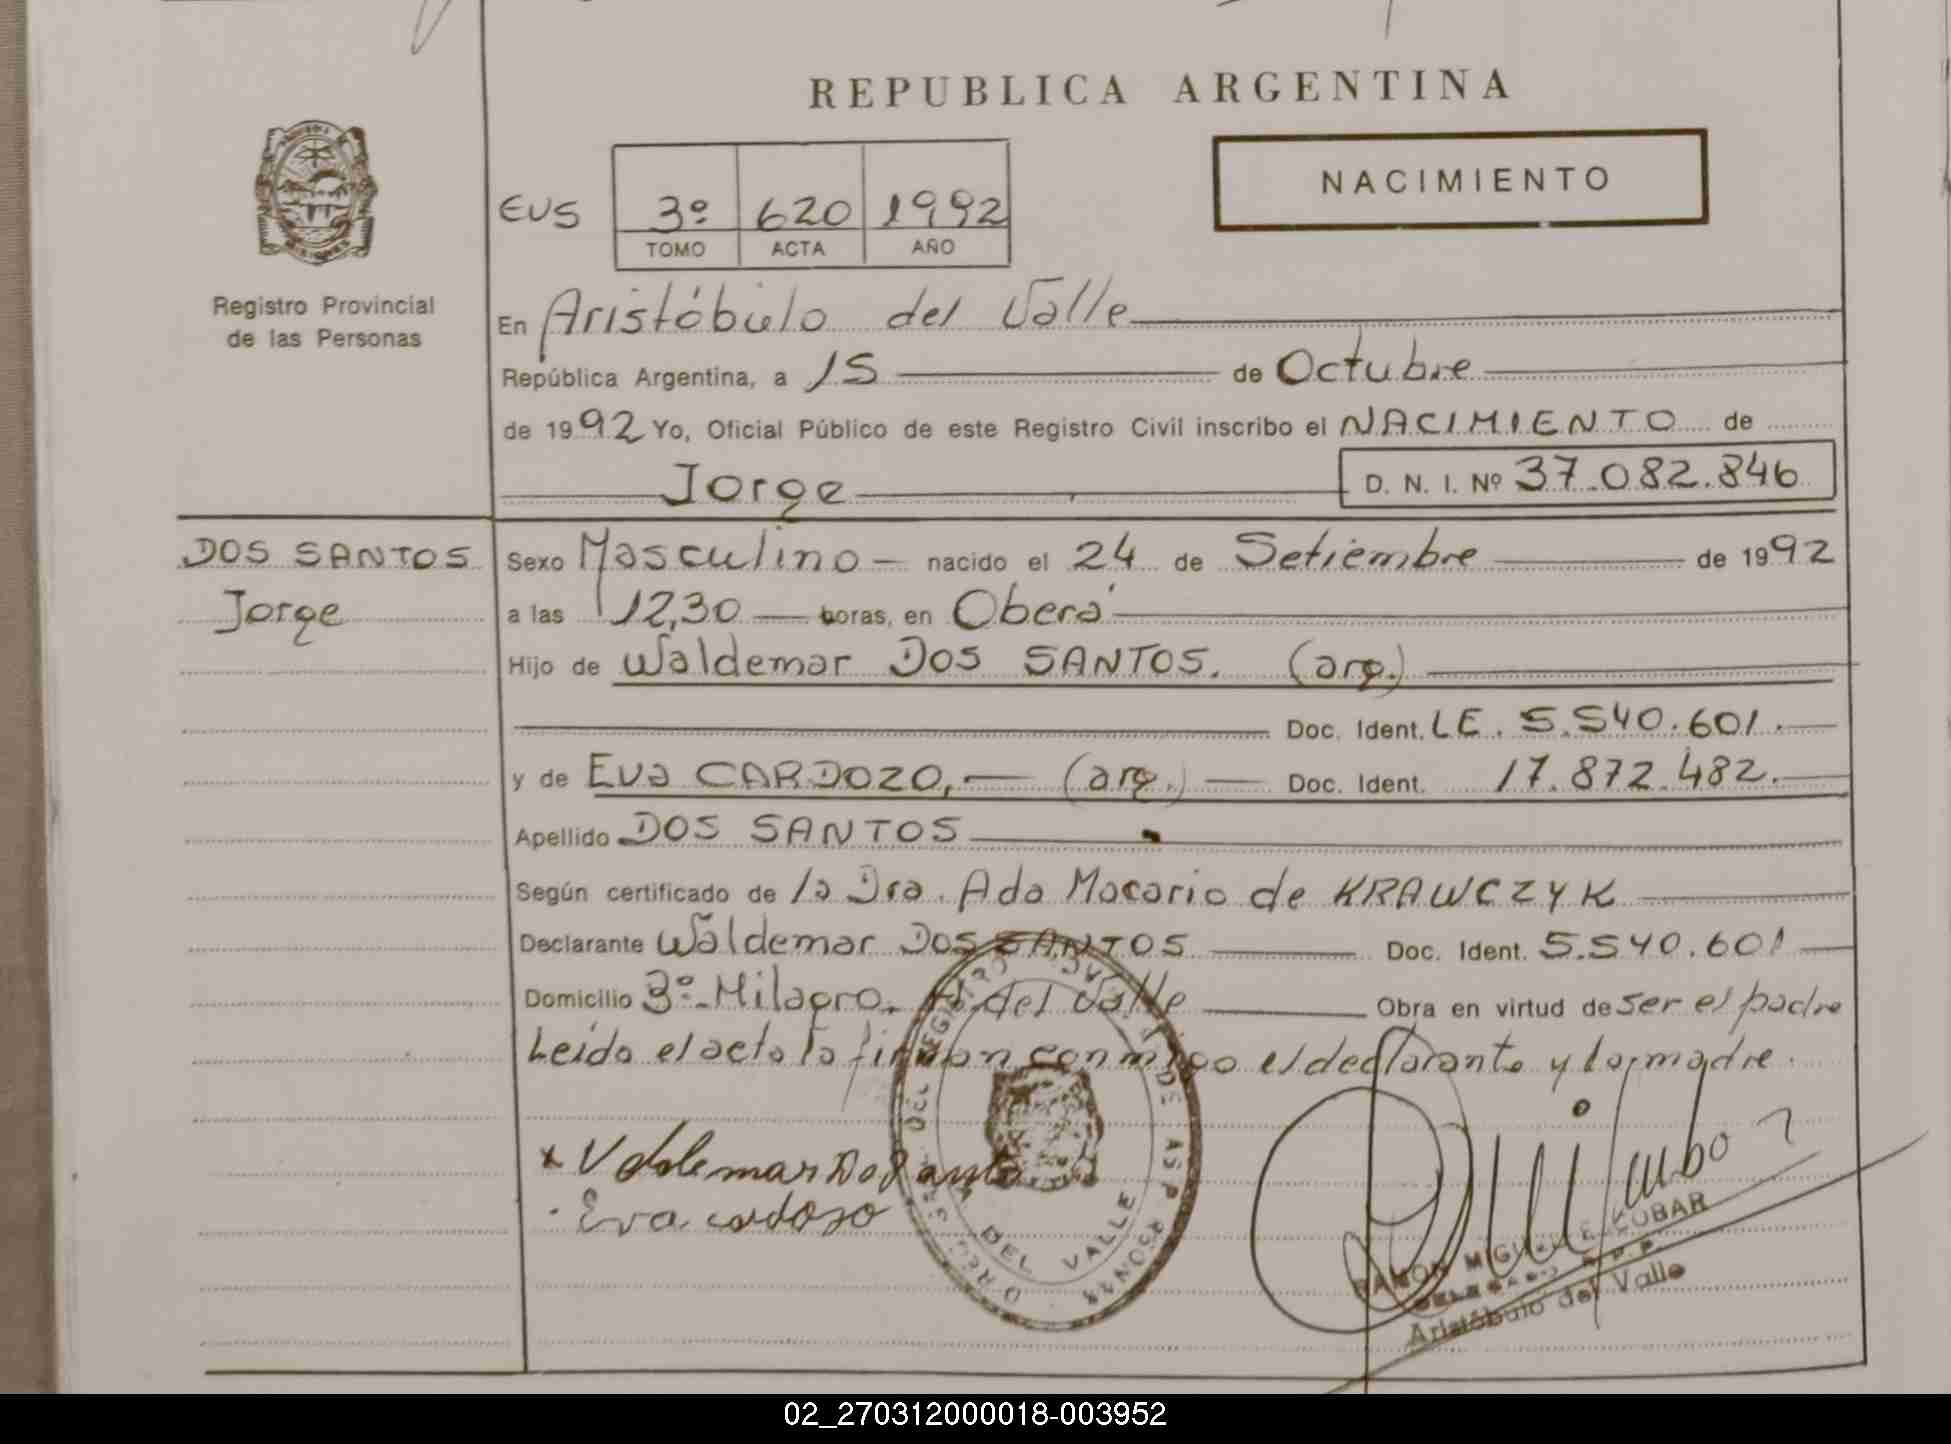 REPUBLICA ARGENTINA
NACIMIENTO
EUS 3º 620 1992
TOMO ACTA AÑO
Registro Provincial
de las Personas
En Aristóbulo del Valle
República Argentina, a 15 de Octubre
de 1992 Yo, Oficial Público de este Registro Civil inscribo el NACIMIENTO de
Jorge D. N. I. Nº 37.082.846
DOS SANTOS
Jorge
Sexo Masculino nacido el 24 de Setiembre de 1992
a las 12,30 horas, en Oberá
Hijo de Waldemar DOS SANTOS. (arg.)
Doc. Ident. LE. 5.540.601.
y de Eva CARDOZO, (arg.) Doc. Ident. 17.872.482.
Apellido DOS SANTOS
Según certificado de la Dra. Ada Macario de KRAWCZYK
Declarante Waldemar DOS SANTOS Doc. Ident. 5.540.601
Domicilio 3º Milagro. A. del Valle Obra en virtud de ser el padre
Leida el acta la firman conmigo el declarante y la madre.
Eva cardoso
DEL VALLE
RAMON MIGUEL ESCOBAR
DELEGADO R.P.P.
Aristóbulo del Valle
02_270312000018-003952